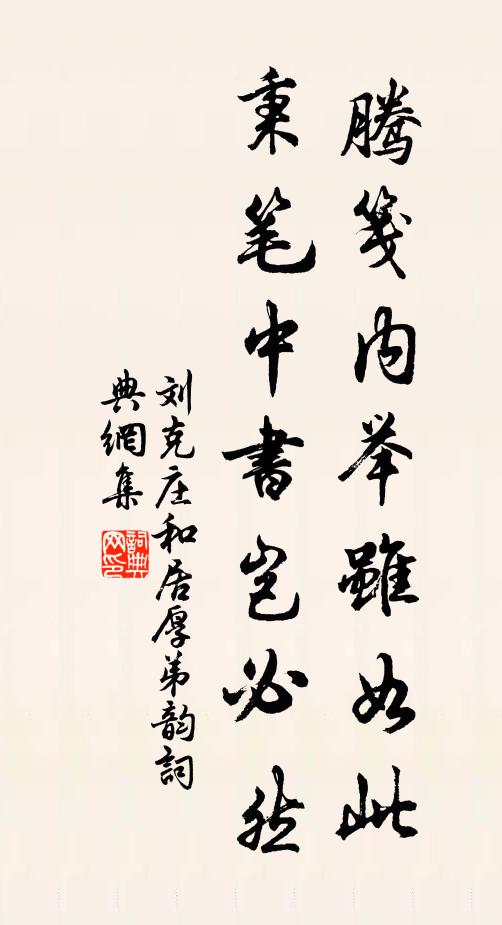 腾笺内举虽如此
秉笔中書岂必然
刘克庄和居厚弟韵詞
典網集
詞典
网印